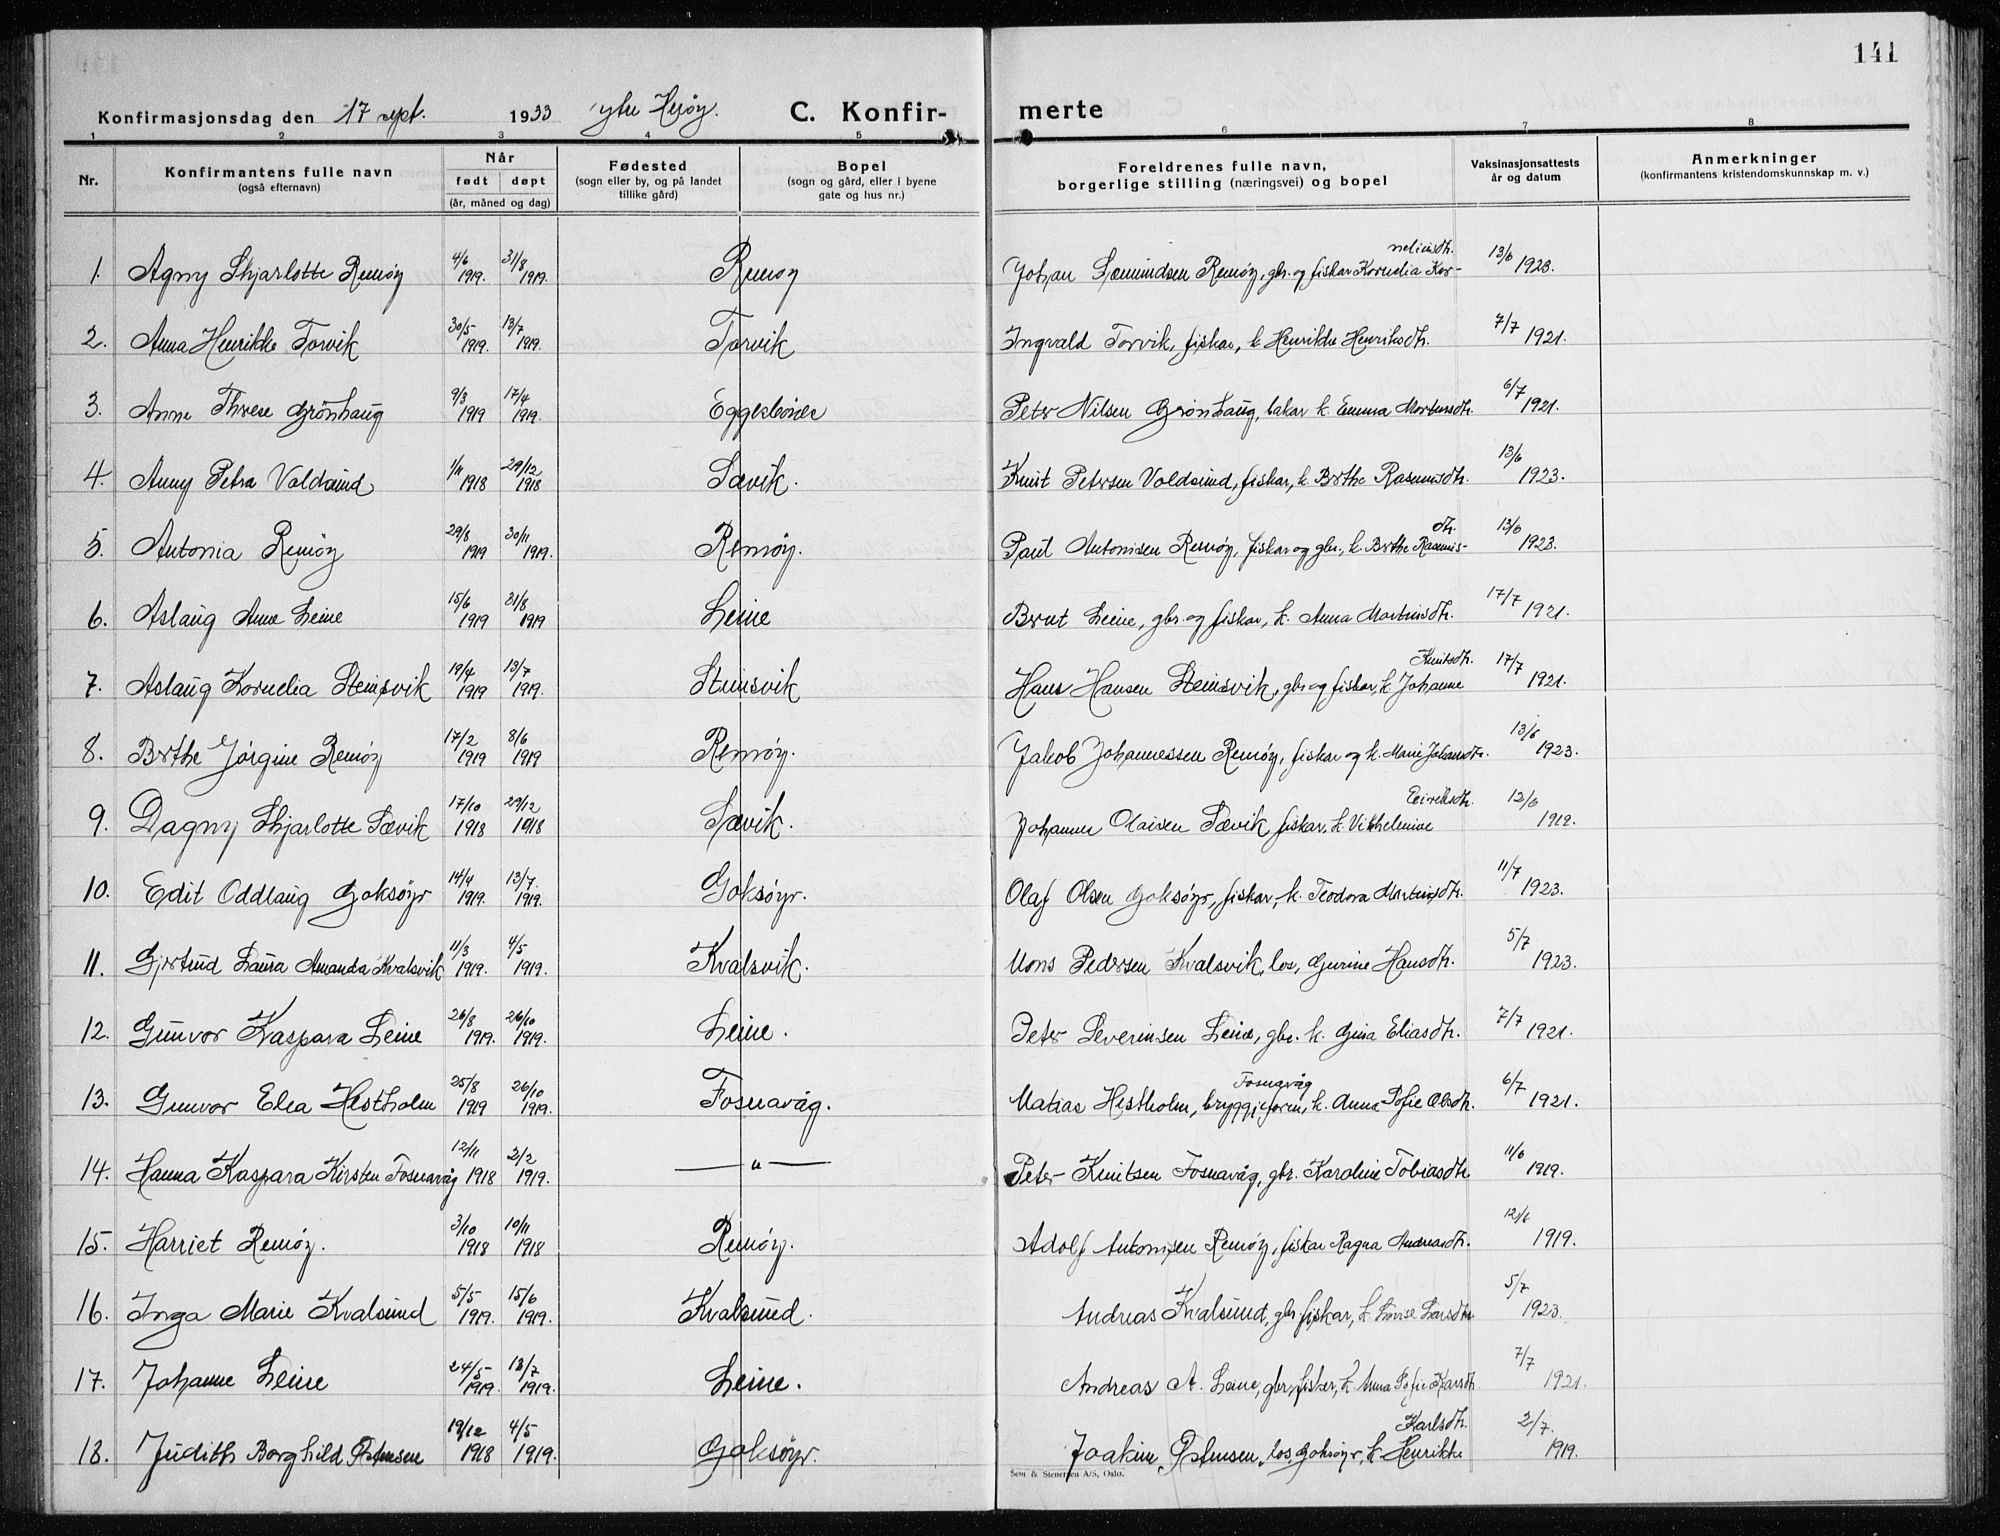 141
Konfirmasjonsdag den 17 sept. 1933 ytre Herøy. C. Konfir- merte
1 2 3 4 5 6 7 8
Nr. Konfirmantens fulle navn (også efternavn) Når født døpt (år, måned og dag) Fødested (sogn eller by, og på landet tillike gård) Bopel (sogn og gård, eller i byene gate og hus nr.) Foreldrenes fulle navn, borgerlige stilling (næringsvei) og bopel Vaksinasjonsattests år og datum Anmerkninger (konfirmantens kristendomskunnskap m. v.)
1. Agny Skjarlotte Remøy 4/6 1919. 31/8 1919. Remøy Johan Sæmundsen Remøy, gbr. og fiskar Kornelia Kor- neliusdtr. 13/6 1923.
2. Anna Henrikke Torvik 30/5 1919. 13/7 1919. Torvik Ingvald Torvik, fiskar, k. Henrikke Henriksdtr. 7/7 1921.
3. Anne Therese Grönhaug 9/3 1919 17/4 1919. Eggesbönes Peter Nilsen Grönhaug, bakar k. Emma Martinsdtr. 6/7 1921.
4. Anny Petra Voldsund 1/11 1918 29/12 1918 Sævik. Knut Petersen Voldsund, fiskar, k. Berthe Rasmusdtr. 13/6 1923.
5. Antonia Remøy 29/8 1919 30/11 1919. Remøy. Paul Antonisen Remøy, fiskar og gbr., k. Berthe Rasmus- dtr. 13/6 1923.
6. Aslaug Anne Leine 15/6 1919 31/8 1919 Leine Bernt Leine, gbr. og fiskar, k. Anna Martinsdtr. 17/7 1921.
7. Aslaug Kornelia Stemsvik 19/4 1919 13/7 1919. Stemsvik Hans Hansen Stemsvik, gbr og fiskar, k. Johanne Knutsdtr. 17/7 1921.
8. Berthe Jørgine Remøy 17/2 1919 8/6 1919 Remøy. Jakob Johannessen Remøy, fiskar og k. Marie Johansdtr. 13/6 1923.
9. Dagny Skjarlotte Sævik 17/10 1918 29/12 1918 Sævik. Johannes Olaisen Sævik, fiskar, k. Vilhelmine Eiriksdtr. 12/6 1919.
10. Edit Oddlaug Goksöyr 14/4 1919. 13/7. 1919. Goksöyr. Olaf Olsen Goksöyr, fiskar, k. Teodora Martinsdtr. 11/7 1923.
11. Gjertrud Laura Amanda Kvalsvik 11/3 1919. 4/5 1919. Kvalsvik. Mons Pedersen Kvalsvik, los, Gurine Hansdtr. 5/7 1923.
12. Gunvor Kaspara Leine 26/8 1919. 26/10 1919. Leine. Peter Severinsen Leine, gbr. k. Gina Eliasdtr. 7/7 1921.
13. Gunvor Elea Hestholm 25/8 1919 26/10 1919. Fosnavåg. Matias Hestholm, bryggjeform, Fosnavåg k. Anna Sofie Olsdtr. 6/7 1921.
14. Hanna Kaspara Kirsten Fosnavåg 12/11 1918 2/2 1919. —"— Peter Knutsen Fosnavåg, gbr. Karoline Tobiasdtr 11/6 1919.
15. Harriet Remøy. 3/10 1918 10/11 1918 Remøy. Adolf Antonisen Remøy, fiskar Ragna Andreasdtr. 12/6 1919.
16. Inga Marie Kvalsund 5/5 1919. 15/6 1919. Kvalsund. Andreas Kvalsund, gbr. fiskar, k. Lovise Larsdtr 5/7 1923.
17. Johanne Leine 24/5 1919. 13/7 1919. Leine. Andreas A. Leine, gbr, fisker, k Anna Sofie Larsdtr 7/7 1921.
18. Judith Borghild Østensen 19/12 1918 4/5 1919. Goksöyr. Joakim Østensen, los, Goksöyr, k. Henrikke Karlsdtr. 2/7. 1919.
Sem & Stenersen A/S, Oslo.